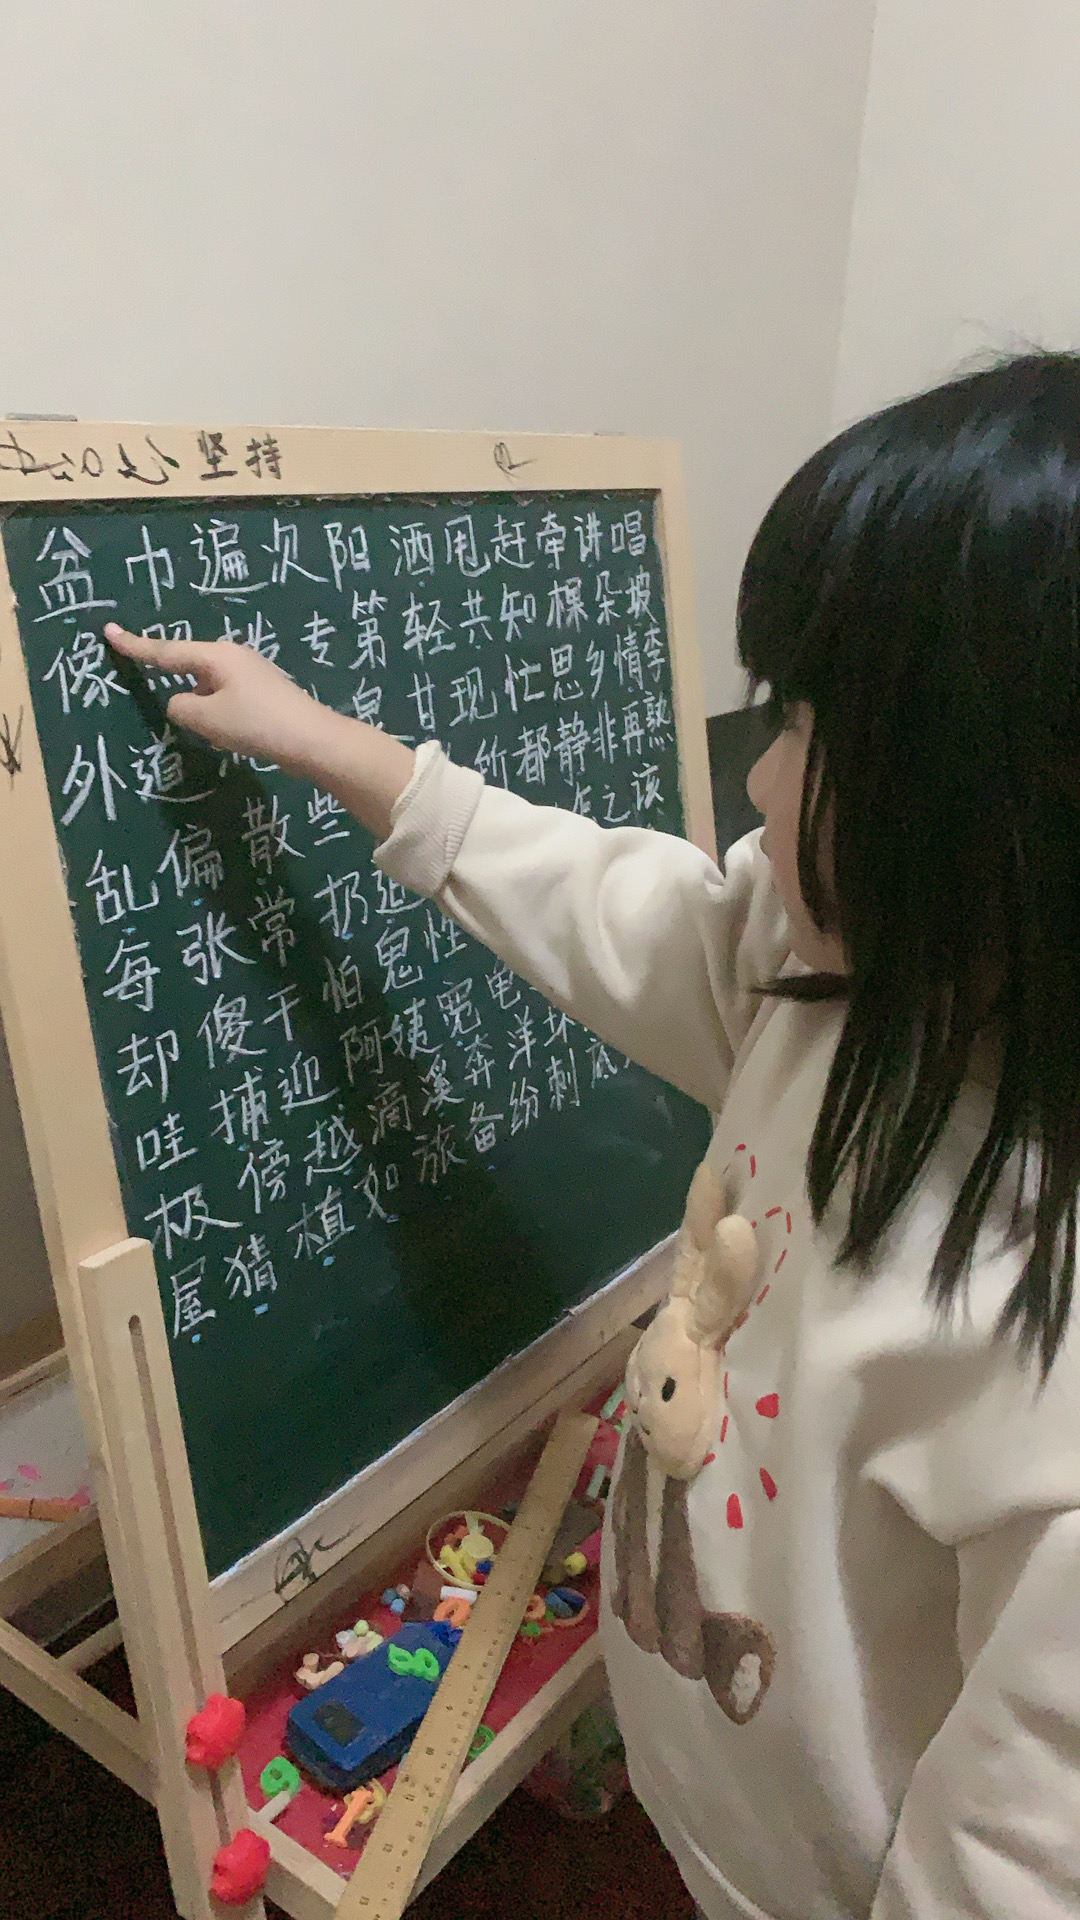 坚持
盆 巾 遍 次 阳 洒 甩 赶 牵 讲 唱
像 照 专 第 轻 共 知 棵 朵 坡
甘 现 忙 思 乡 情 李
外 道 所 都 静 非 再 熟
乱 偏 散 些 之 该
每 张 常 扔
却 傻 干 怕 鬼 性
哇 捕 迎 阿 姨 宽
极 傍 越 滴 溪 奔 洋 坏
屋 猜 植 如 旅 备 纷 刺 底